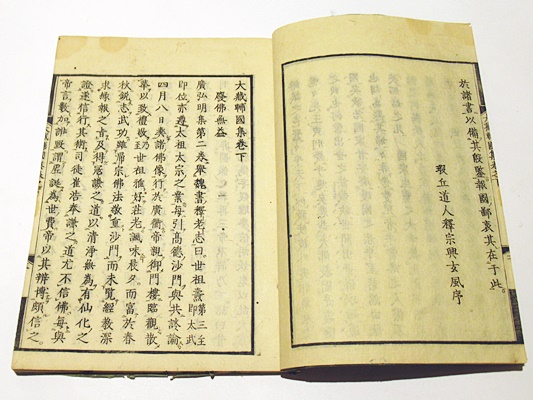 於諸書以備其殷鑒報國鄙衷其在于此
瑕丘道人釋宗興玄風序
大藏輔國集卷下
廢佛無益
廣弘明集第二卷舉魏書釋老志曰世祖燾第三主即太武
即位亦遵太祖太宗之業每引高德沙門與共談論
四月八日輿諸佛像行於廣衢帝親御門樓臨觀散
華以致禮敬乃至世祖雅好莊老諷味晨夕而富於春
秋銳志武功雖歸宗佛法敬重沙門而未覽經教深
求緣報之旨及得寇謙之道以清淨無為有仙化之
證遂信行其術司徒崔浩奉謙之道尤不信佛每與
帝言數加誹毀謂虛誕為世費帝以其辨博頗信之